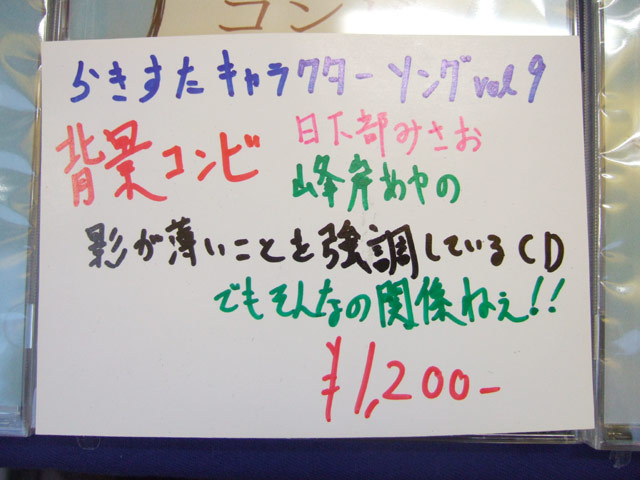 コン
らきすたキャラクターソング vol 9
背景コンビ
日下部みさお
峰岸あやの
影が薄いことを強調しているCD
でもそんなの関係ねぇ!!
¥1,200-